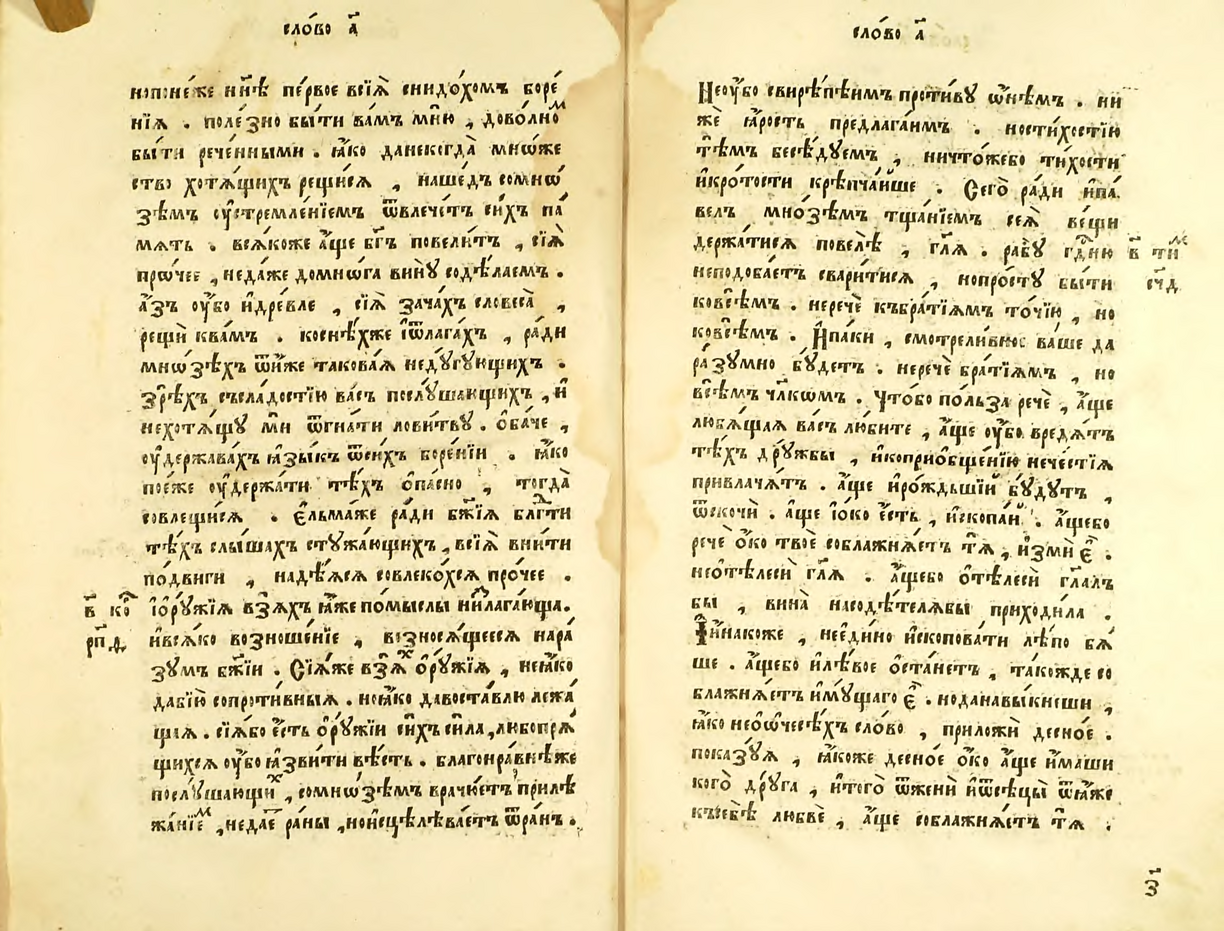 сло́во а҃
нопоне́же нн҃ѣ пе́рвое всїѧ̀ снидо́хомъ боре́
нїѧ . поле́зно бы́ти ва́мъ мню̀ , дово́лноⷨ
бы́ти рече́нными . ꙗ҆́ко данекогда̀ мно́же
ство хотѧ́щихъ рещи́сѧ , наше́дъ сомнѡ́
зѣмъ ᲂу҆стремле́нїемъ ѿвлече́тъ си́хъ па́
мѧть . всѧ́коже а҆́ще бг҃ъ повели́тъ , сїѧ̀
прѡ́чее , неда́же домнѡ́га вину̀ содѣ́лаемъ .
а҆́зъ ᲂу҆́бо и҆дре́вле , сїѧ̀ зача́хъ словеса̀ ,
рещѝ ква́мъ . коснѣ́хже і҆ѿлага́хъ , ра́ди
мнѡ́зѣхъ ѿни́же такова́ѧ неду́гующихъ .
зрѣ́хъ съсла́достїю ва́съ послу́шающихъ , и҆
нехотѧ́щу мѝ ѿгна́ти лови́тву . ѻ҆ба́че ,
ᲂу҆держава́хъ ꙗ҆зы́къ ѿси́хъ боре́нїи . ꙗ҆́ко
поє́же ᲂу҆держа́ти тѣ́хъ ѻ҆па́сно , тогда̀
совлещи́сѧ . є҆́льмаже ра́ди бж҃їѧ блгⷣти
тѣ́хъ слы́шахъ стужа́ющихъ , всїѧ̀ вни́ти
по́двиги , надѣ́ѧсѧ совлеко́хсѧ про́чее .
в҃ коⷬ
і҆ѻ҆ру́жїѧ взѧ́хъ ꙗ҆́же по́мыслы низлага́юща.
рп҃д
и҆всѧ́ко возноше́нїе , возносѧ́щеесѧ нара́
зумъ бж҃їи . Сїѧ́же взѧ́ⷯ ѻ҆ру́жїѧ , неꙗ҆́ко
дабїю̀ сопроти́вныѧ . ноꙗ҆́ко давоста́влю лежа́
щаѧ . сїѧ́бо є҆́сть ѻ҆ру́жїи си́хъ си́ла , любопрѧ́
щихсѧ ᲂу҆́бо ꙗ҆зви́ти вѣ́сть . благонра́внѣже
послу́шающиⷯ , сомнѡ́зѣмъ врачю́етъ прилѣ
жа́нїеⷨ , недае́ ра́ны , ноисцѣлѣва́етъ ѿра́нъ .
сло́во а҃
Неᲂу҆́бо свирѣ́пѣимъ проти́ву ѡ҆нѣ́мъ . ни
жѐ ꙗ҆́рость предлага́имъ . ности́хостїю
тѣ́мъ бесѣ́дуемъ , ничто́жебо ти́хости
и҆кро́тости крѣпча́йше . Сего̀ ра́ди и҆па́
велъ мно́зѣмъ тща́нїемъ сеѧ̀ ве́щи
держа́тисѧ повелѣ̀ , гл҃ѧ . рабу̀ гдⷭ҇ню
в҃ тиⷨ
неподоба́етъ свари́тисѧ , нопро́сту бы́ти
сч҃д
ковсѣ́мъ . неречѐ къбра́тїѧмъ то́чїю , но
ковсѣ́мъ . И҆па́ки , смотре́ливное ва́ше да
разу́мно бу́детъ . неречѐ бра́тїѧмъ , но
всѣ́мъ чл҃кѡмъ . Что́бо по́льза речѐ , а҆́ще
любѧ́щаѧ ва́съ лю́бите , а҆́ще ᲂу҆́бо вредѧ́тъ
тѣ́хъ дру́жбы , и҆коприѻбще́нїю нече́стїѧ
привлача́тъ . а҆́ще и҆ро́ждьшїи бу́дутъ ,
ѿскочѝ . а҆́ще і҆о́ко є҆́сть , и҆скопа́й . а҆́щебо
речѐ ѻ҆́ко твоѐ соблажнѧ́етъ тѧ̀ , и҆змѝ є҆̀ .
неѻ҆тѣ́леси гл҃ѧ . а҆́щебо ѻ҆тѣ́леси гл҃алъ
бы̀ , вина̀ насодѣ́телѧбы приходи́ла .
І҆и҆на́коже , неє҆ди́но и҆скопова́ти лѣ́по бѧ́
ше . а҆́щебо и҆лѣ́вое ѻ҆ста́нетъ , тако́жде со
блажнѧ́етъ и҆му́щаго є҆̀ . ноданавы́кнеши ,
ꙗ҆́ко неѻ҆ѻ҆чесѣ́хъ сло́во , приложѝ десно́е .
показу́ѧ , ꙗ҆́коже десно́е ѻ҆́ко а҆́ще и҆́маши
кого̀ дру́га , и҆того̀ ѿженѝ и҆ѿсѣцы̀ ѿꙗ҆́же
къ́себѣ̀ любвѐ , а҆́ще соблажнѧ́етъ тѧ̀ .
з҃